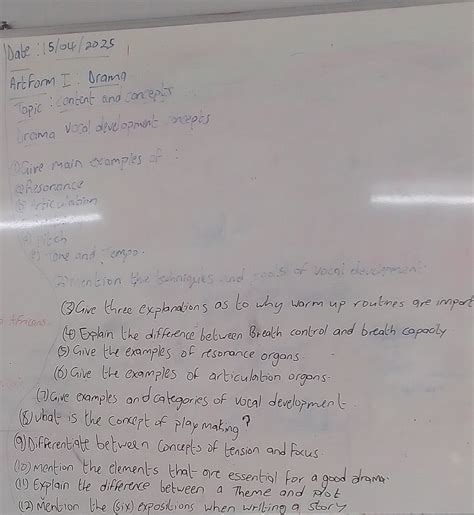 Date : 15/04/2025
Art Form I : Drama
Topic : Content and concepts
Drama vocal development concepts
(1) Give main examples of :
(a) Resonance
(b) Articulation
(d) Pitch
(e) Tone and Tempo.
(2) Mention the techniques and goals of vocal development.
(3) Give three explanations as to why warm up routines are import
Africans.
(4) Explain the difference between Breath control and breath capacity
(5) Give the examples of resonance organs.
(6) Give the examples of articulation organs.
(7) Give examples and categories of vocal development.
(8) what is the concept of play making?
(9) Differentiate between Concepts of tension and focus.
(10) Mention the elements that are essential for a good drama.
(11) Explain the difference between a Theme and plot
(12) Mention the (six) expositions when writing a story